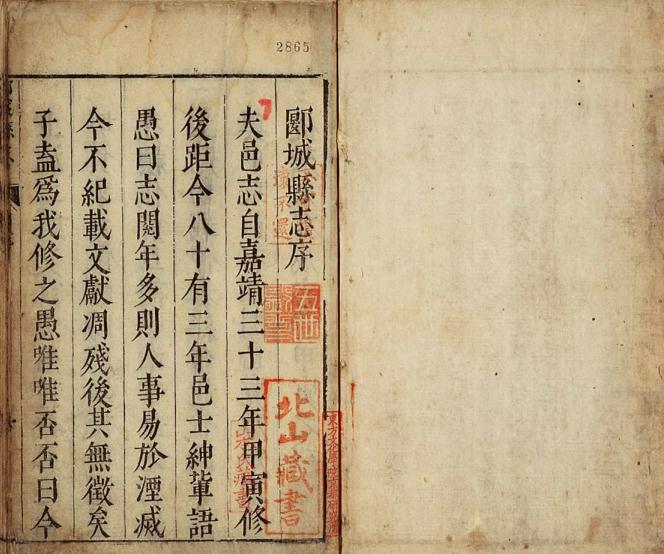 2865
郾城縣志序
夫邑志自嘉靖三十三年甲寅修
後距今八十有三年邑士紳輩語
愚曰志闕年多則人事易於湮滅
今不紀載文獻凋殘後其無徵矣
子盍爲我修之愚唯唯否否曰今
北山藏書